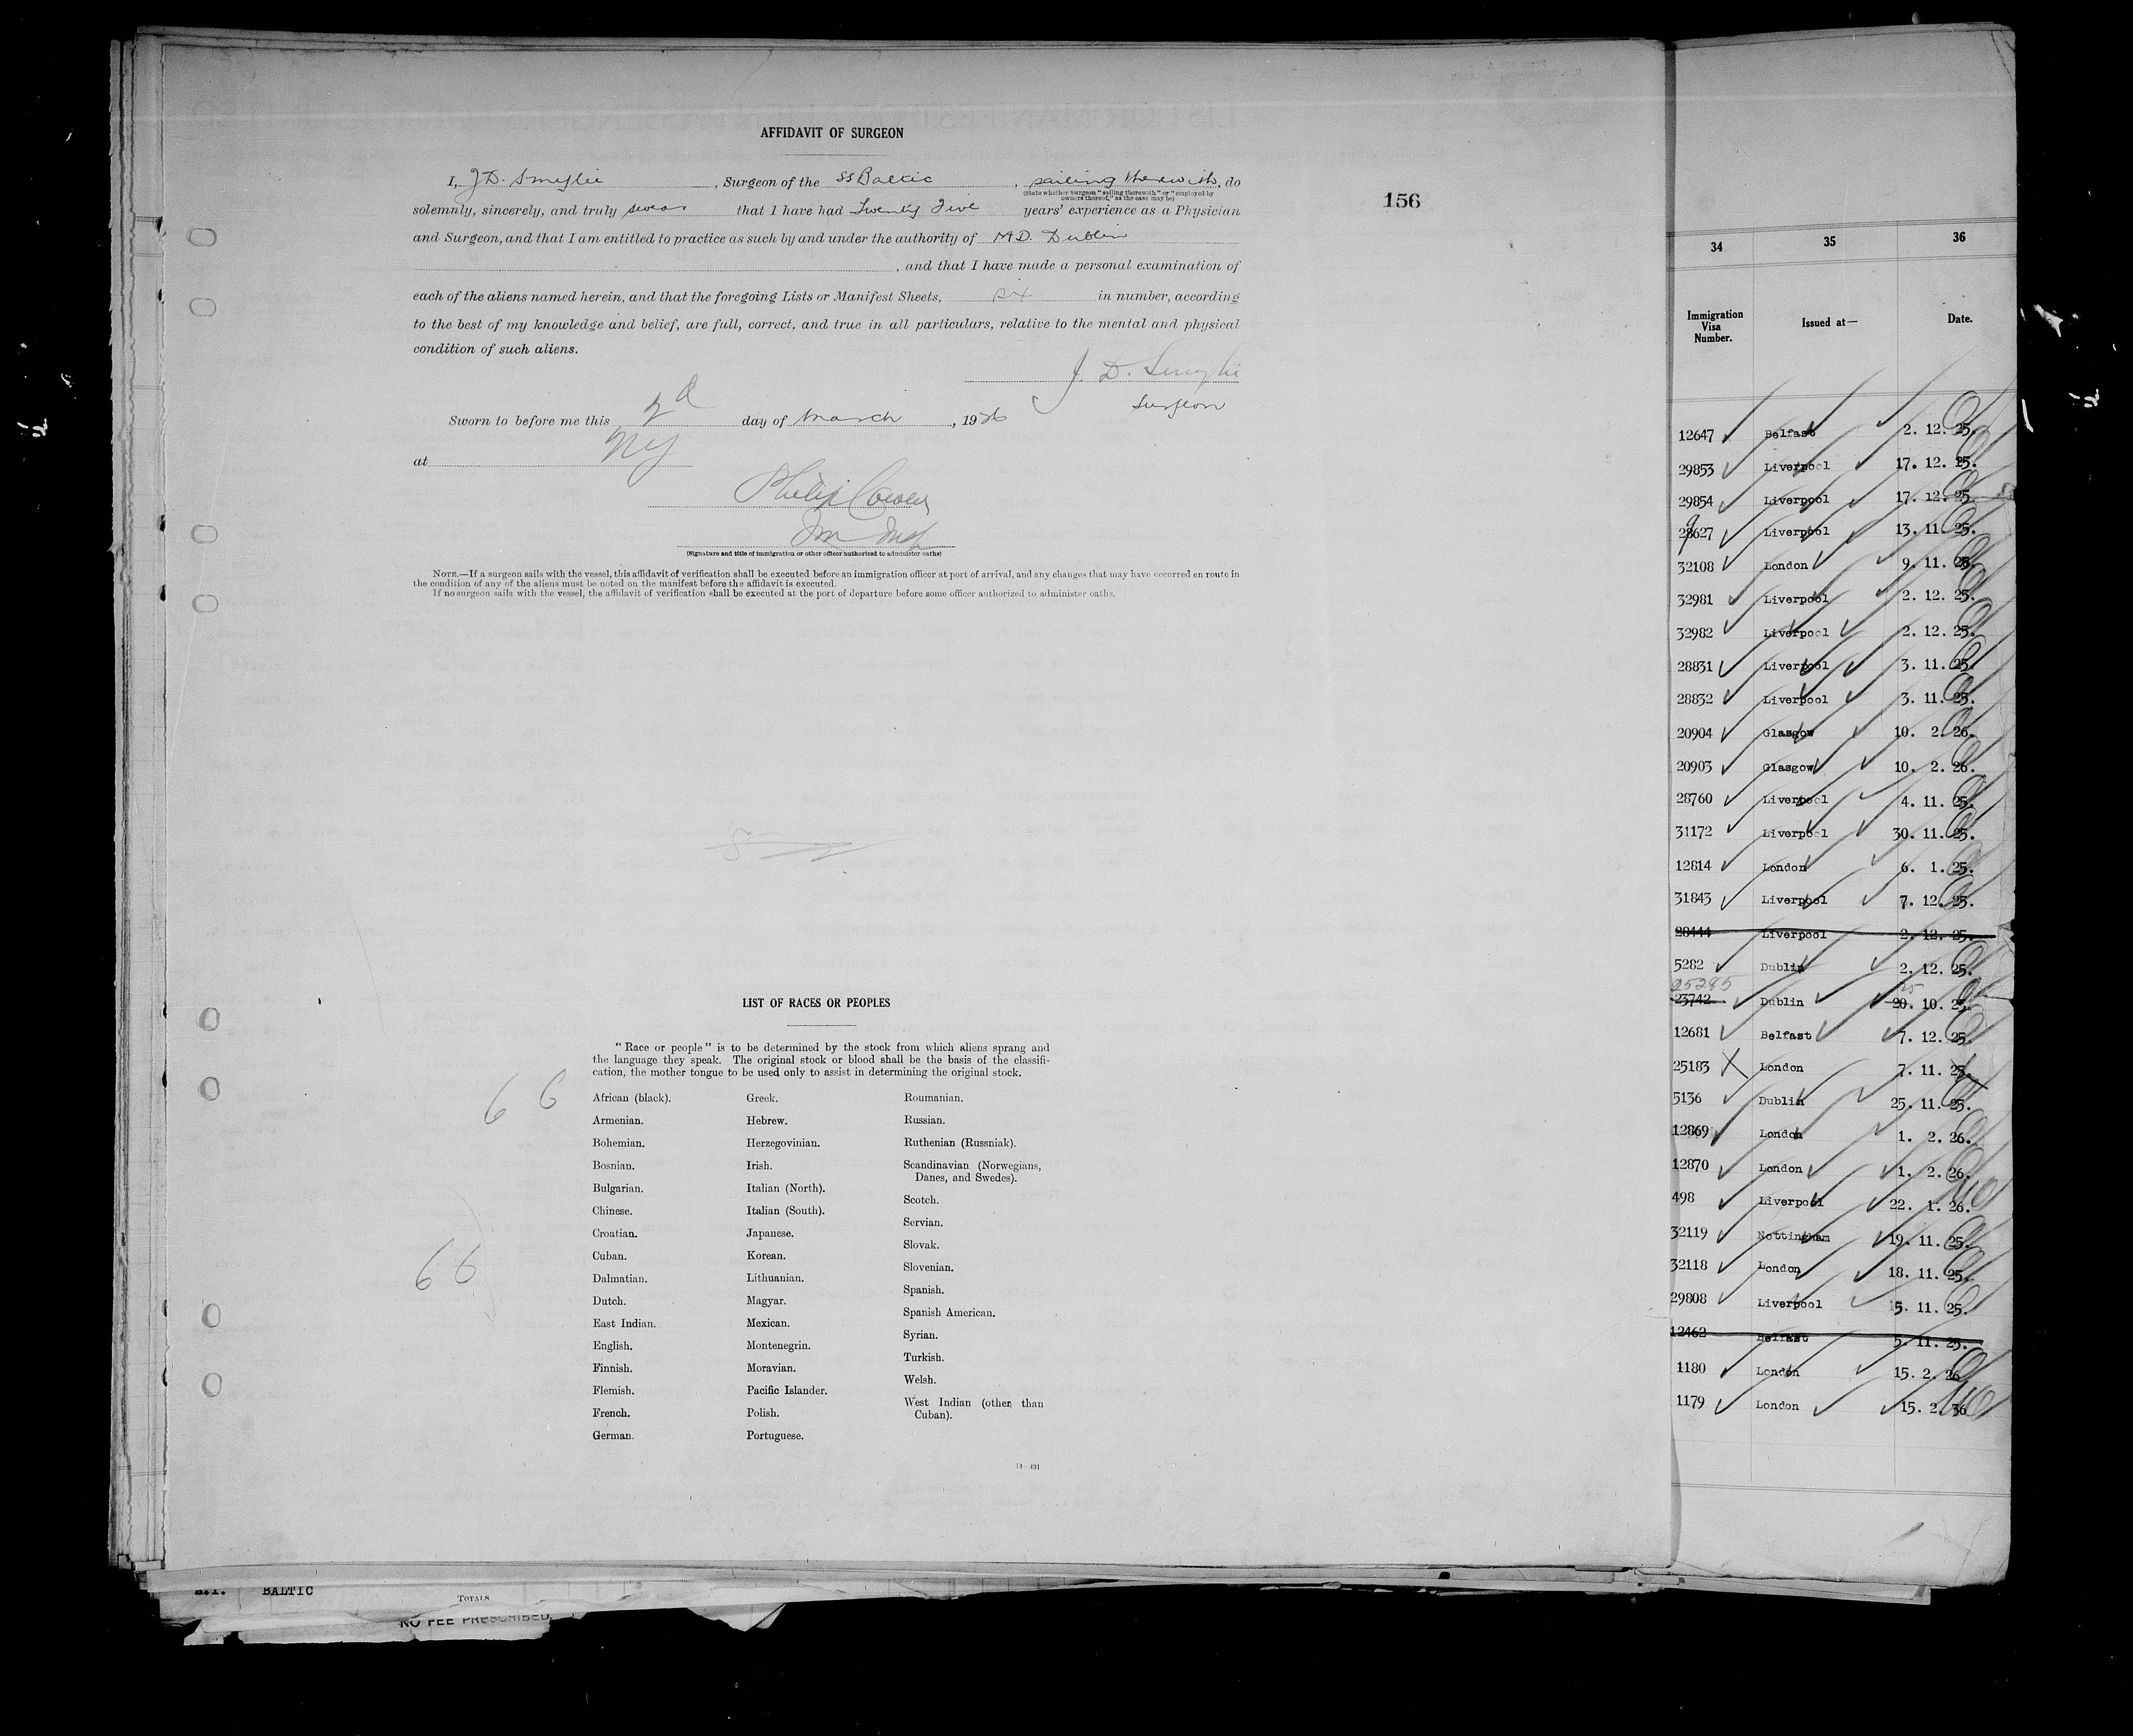 AFFIDAVIT OF SURGEON
I, J D. Smylie, Surgeon of the SS Baltic, sailing therewith, do
(State whether Surgeon "sailing therewith" or "employed by
owners thereof," as the case may be)
solemnly, sincerely, and truly swear that I have had Twenty Five years' experience as a Physician
and Surgeon, and that I am entitled to practice as such by and under the authority of M.D. Dublin
, and that I have made a personal examination of
each of the aliens named herein, and that the foregoing Lists or Manifest Sheets, six in number, according
to the best of my knowledge and belief, are full, correct, and true in all particulars, relative to the mental and physical
condition of such aliens.
J. D. Smylie
Surgeon
Sworn to before me this 2d day of March, 1926
at NY
Philip Cowen
Im Insp
(Signature and title of immigration or other officer authorized to administer oaths)
NOTE.—If a surgeon sails with the vessel, this affidavit of verification shall be executed before an immigration officer at port of arrival, and any changes that may have occurred en route in
the condition of any of the aliens must be noted on the manifest before the affidavit is executed.
If no surgeon sails with the vessel, the affidavit of verification shall be executed at the port of departure before some officer authorized to administer oaths.
156
LIST OF RACES OR PEOPLES
"Race or people" is to be determined by the stock from which aliens sprang and
the language they speak. The original stock or blood shall be the basis of the classifi-
cation, the mother tongue to be used only to assist in determining the original stock.
66
66
African (black).
Armenian.
Bohemian.
Bosnian.
Bulgarian.
Chinese.
Croatian.
Cuban.
Dalmatian.
Dutch.
East Indian.
English.
Finnish.
Flemish.
French.
German.
Greek.
Hebrew.
Herzegovinian.
Irish.
Italian (North).
Italian (South).
Japanese.
Korean.
Lithuanian.
Magyar.
Mexican.
Montenegrin.
Moravian.
Pacific Islander.
Polish.
Portuguese.
Roumanian.
Russian.
Ruthenian (Russniak).
Scandinavian (Norwegians,
Danes, and Swedes).
Scotch.
Servian.
Slovak.
Slovenian.
Spanish.
Spanish American.
Syrian.
Turkish.
Welsh.
West Indian (other than
Cuban).
14—431
34 35 36
Immigration
Visa
Number.
Issued at—
Date.
12647 Belfast 2. 12. 25.
29853 Liverpool 17. 12. 25.
29854 Liverpool 17. 12. 25.
28627 Liverpool 13. 11. 25.
32108 London 9. 11. 25.
32981 Liverpool 2. 12. 25.
32982 Liverpool 2. 12. 25.
28831 Liverpool 3. 11. 25.
28832 Liverpool 3. 11. 25.
20904 Glasgow 10. 2. 26.
20903 Glasgow 10. 2. 26.
28760 Liverpool 4. 11. 25.
31172 Liverpool 30. 11. 25.
12814 London 6. 1. 25.
31843 Liverpool 7. 12. 25.
28444 Liverpool 2. 12. 25.
5282 Dublin 2. 12. 25.
25285
23742 Dublin 20. 10. 25.
12681 Belfast 7. 12. 25.
25183 London 7. 11. 25.
5136 Dublin 25. 11. 25.
12869 London 1. 2. 26.
12870 London 1. 2. 26.
498 Liverpool 22. 1. 26.
32119 Nottingham 19. 11. 25.
32118 London 18. 11. 25.
29808 Liverpool 5. 11. 25.
12462 Belfast 5. 11. 25.
1180 London 15. 2. 26
1179 London 15. 2. 36
BALTIC
TOTALS
NO FEE PRESCRIBED.